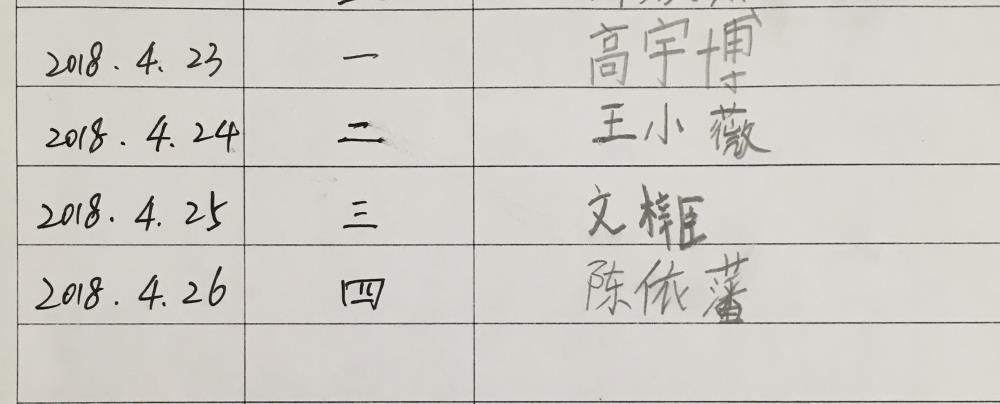 2018.4.23 一 高宇博
2018.4.24 二 王小薇
2018.4.25 三 文梓臣
2018.4.26 四 陈依蕃